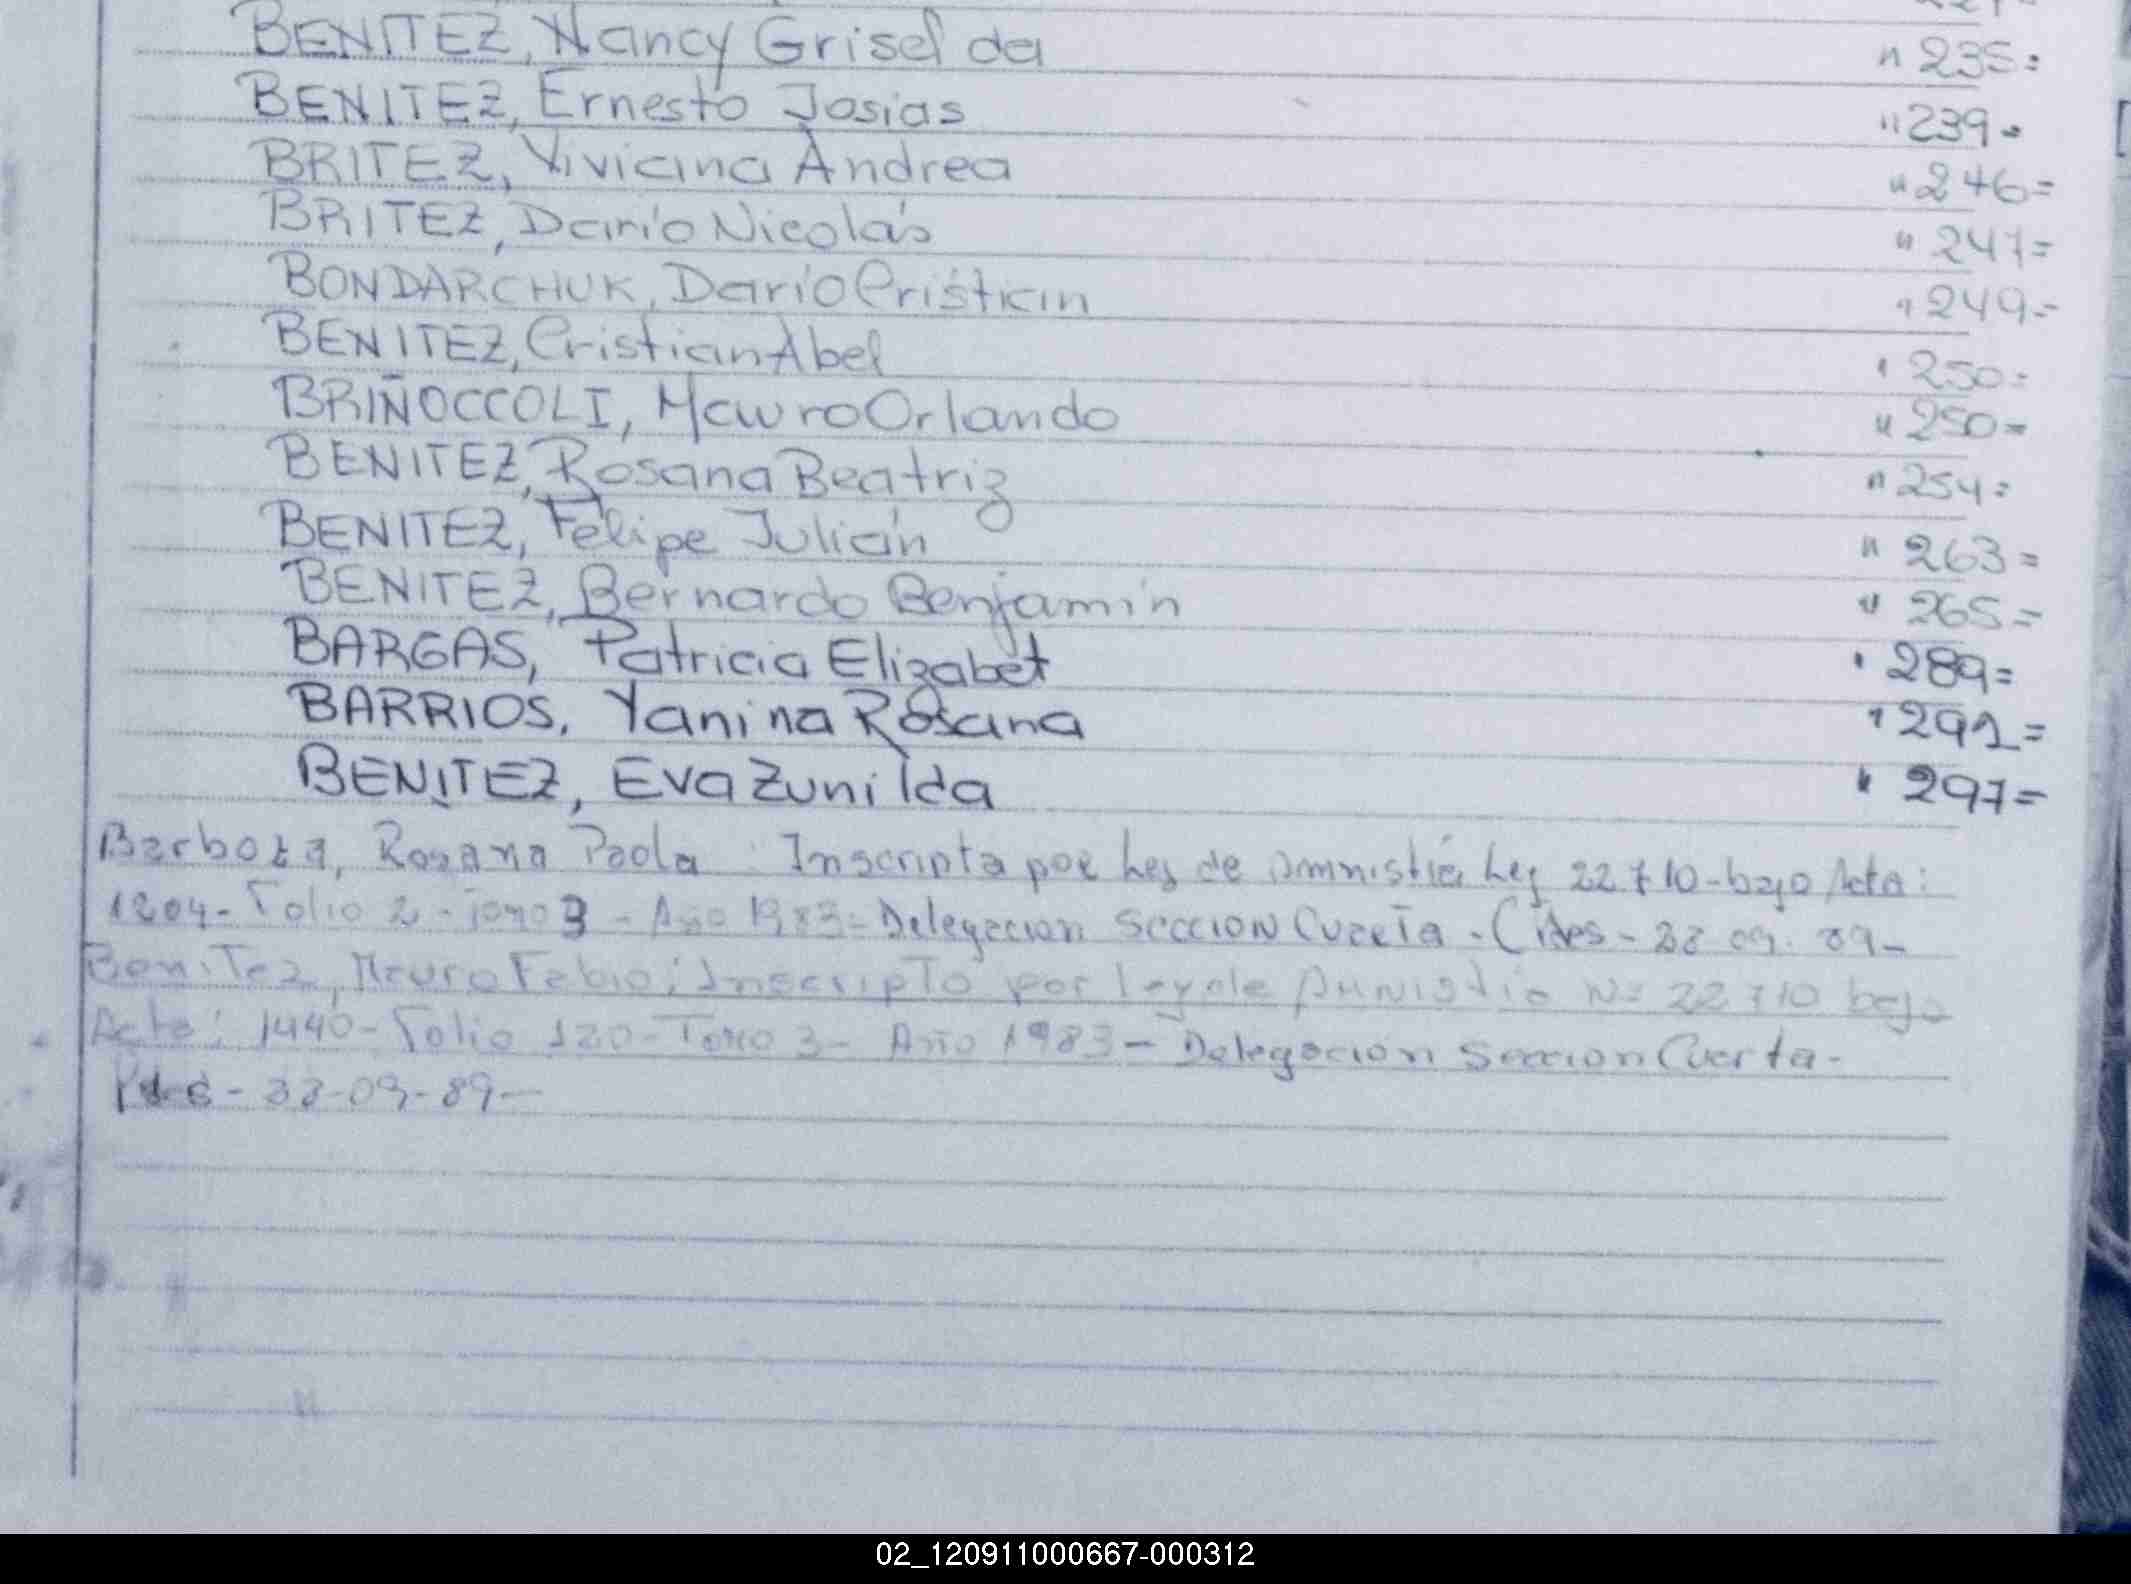 BENITEZ, Nancy Griselda " 235=
BENITEZ, Ernesto Josias " 239=
BRITEZ, Viviana Andrea " 246=
BRITEZ, Darío Nicolás " 247=
BONDARCHUK, Darío Cristian " 249=
BENITEZ, Cristian Abel " 250=
BRIÑOCCOLI, Mauro Orlando " 250=
BENITEZ, Rosana Beatriz " 254=
BENITEZ, Felipe Julián " 263=
BENITEZ, Bernardo Benjamín " 265=
BARGAS, Patricia Elizabet " 289=
BARRIOS, Yanina Rosana " 291=
BENITEZ, Eva Zunilda " 297=
Barboza, Rosana Paola: Inscripta por Ley de Amnistía Ley 22710-bajo Acta:
1204- Folio 2 - Tomo 3 - Año 1983- Delegacion Seccion Cuarta. - 09. 89-
Benitez, Mauro Fabio; Inscripto por ley de Amnistia Nº 22710 bajo
Acta: 1440- Folio 120- Tomo 3- Año 1983- Delegacion Seccion Cuarta-
-09-89-
02_120911000667-000312